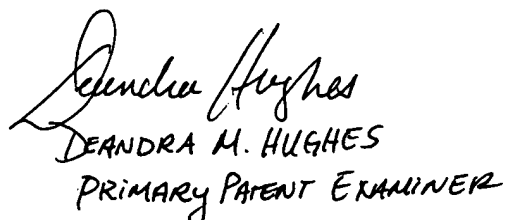 Deandra Hughes
DEANDRA M. HUGHES
PRIMARY PATENT EXAMINER